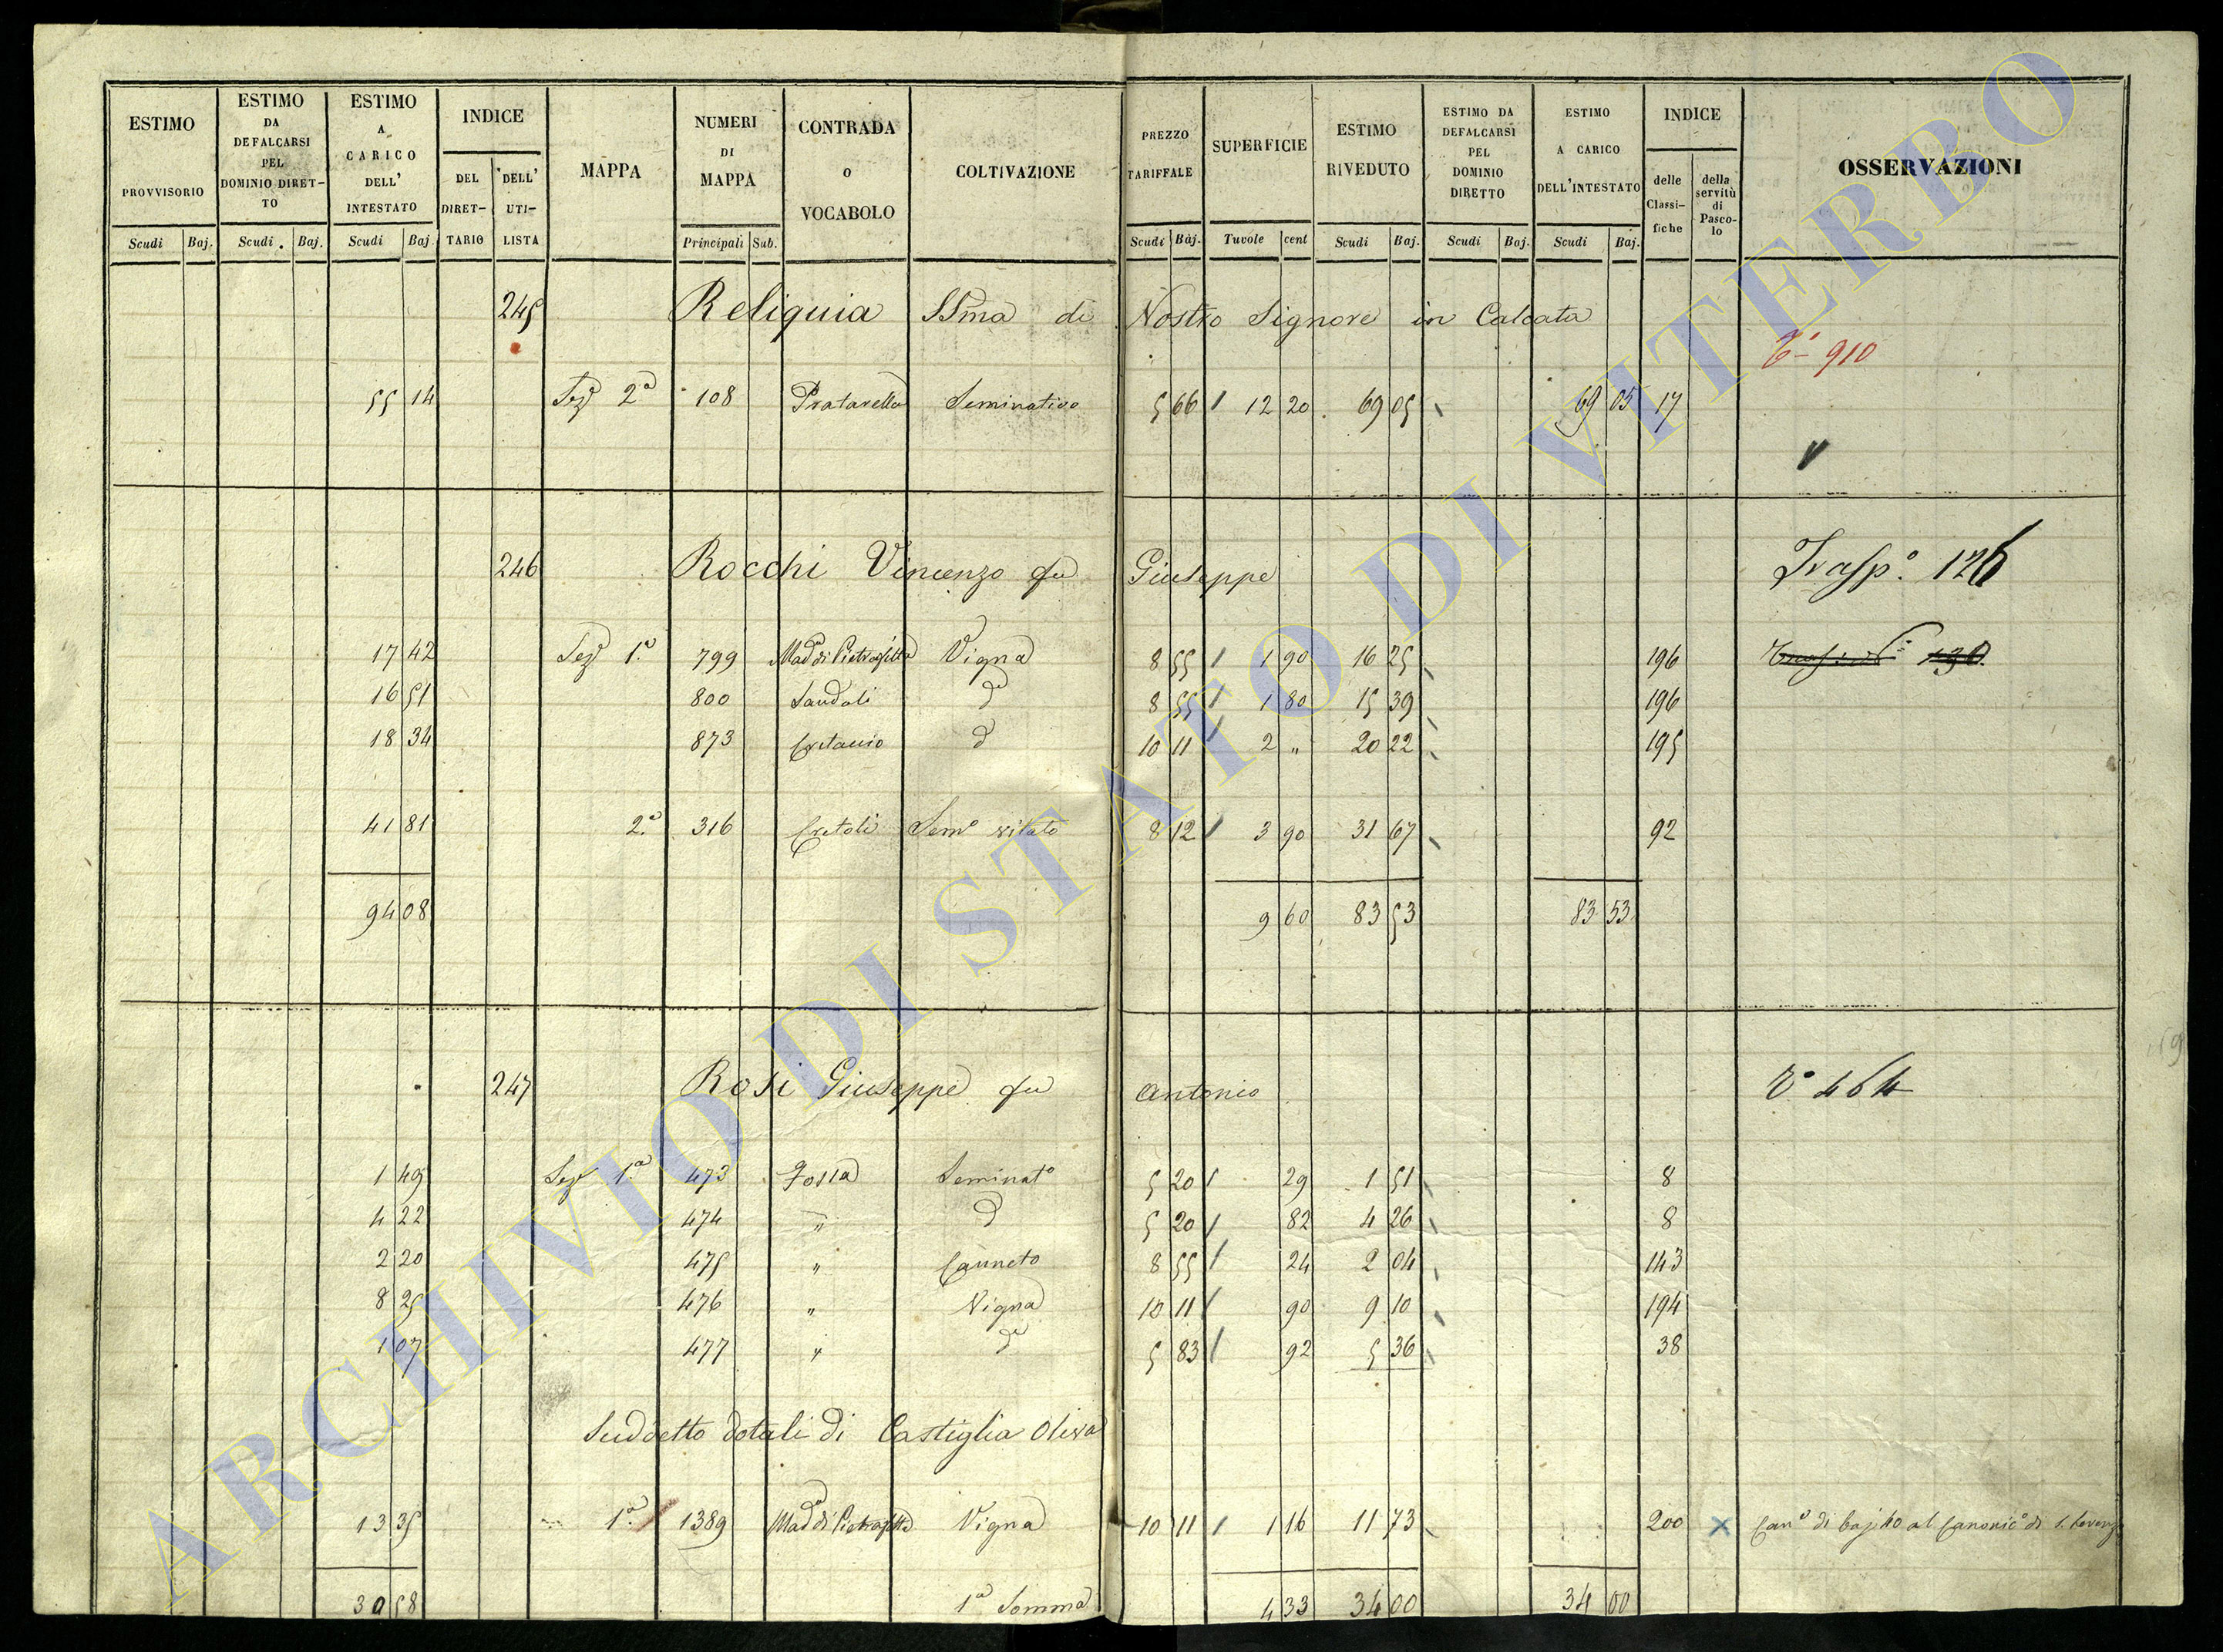 ESTIMO PROVVISORIO Scudi Baj.
ESTIMO DA DEFALCARSI PEL DOMINIO DIRET-TO Scudi. Baj.
ESTIMO A CARICO DELL' INTESTATO Scudi Baj.
INDICE DEL DIRET-TARIO DELL' UTI-LISTA
MAPPA
NUMERI DI MAPPA Principali Sub.
CONTRADA o VOCABOLO
COLTIVAZIONE
PREZZO TARIFFALE Scudi Baj.
SUPERFICIE Tavole cent
ESTIMO RIVEDUTO Scudi Baj.
ESTIMO DA DEFALCARSI PEL DOMINIO DIRETTO Scudi Baj.
ESTIMO A CARICO DELL'INTESTATO Scudi Baj.
INDICE delle Classi-fiche della servitù di Pasco-lo
OSSERVAZIONI
245 Reliquia SSma di Nostro Signore in Calcata
910
55 14 Sez 2a 108 Pratarella Seminativo 5 66 12 20 69 05 69 05 17
246 Rocchi Vincenzo fu Giuseppe Trasp.o 126
17 42 Sez 1a 799 Mad di Pietrafitta Vigna 8 55 1 90 16 25 196
16 51 800 Sandoli d 8 55 1 80 15 39 196
18 34 873 d 10 11 2 " 20 22 195
41 81 2a 316 Cretoli Semo vitato 8 12 3 90 31 67 92
94 08 9 60 83 53 83 53
247 Rosi Giuseppe fu Antonio 464
1 49 Sez 1a 473 Fossa Seminato 5 20 29 1 51 8
4 22 474 " d 5 20 82 4 26 8
2 20 475 " Canneto 8 55 24 2 04 143
8 25 476 " Vigna 10 11 90 9 10 194
1 07 477 " d 5 83 92 5 36 38
Suddetto dotali di Castiglia Oliva
13 35 1a 1389 Mad di Pietrafitta Vigna 10 11 1 16 11 73 200 x Cano di baj 40 al Canonico di S. Lorenzo
30 58 1a Somma 4 33 34 00 34 00
ARCHIVIO DI STATO DI VITERBO